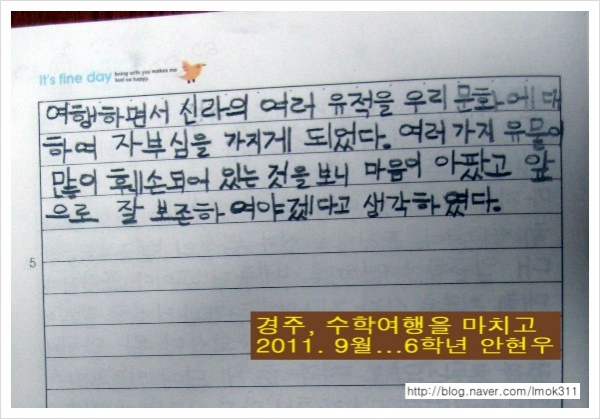 It's fine day being with you makes me
feel so happy.
여행하면서 신라의 여러 유적을 우리 문화에 대
하여 자부심을 가지게 되었다. 여러가지 유물이
많이 훼손되어 있는 것을 보니 마음이 아팠고 앞
으로 잘 보존하여야겠다고 생각하였다.
5
경주, 수학여행을 마치고
2011. 9월...6학년 안현우
http://blog.naver.com/lmok311